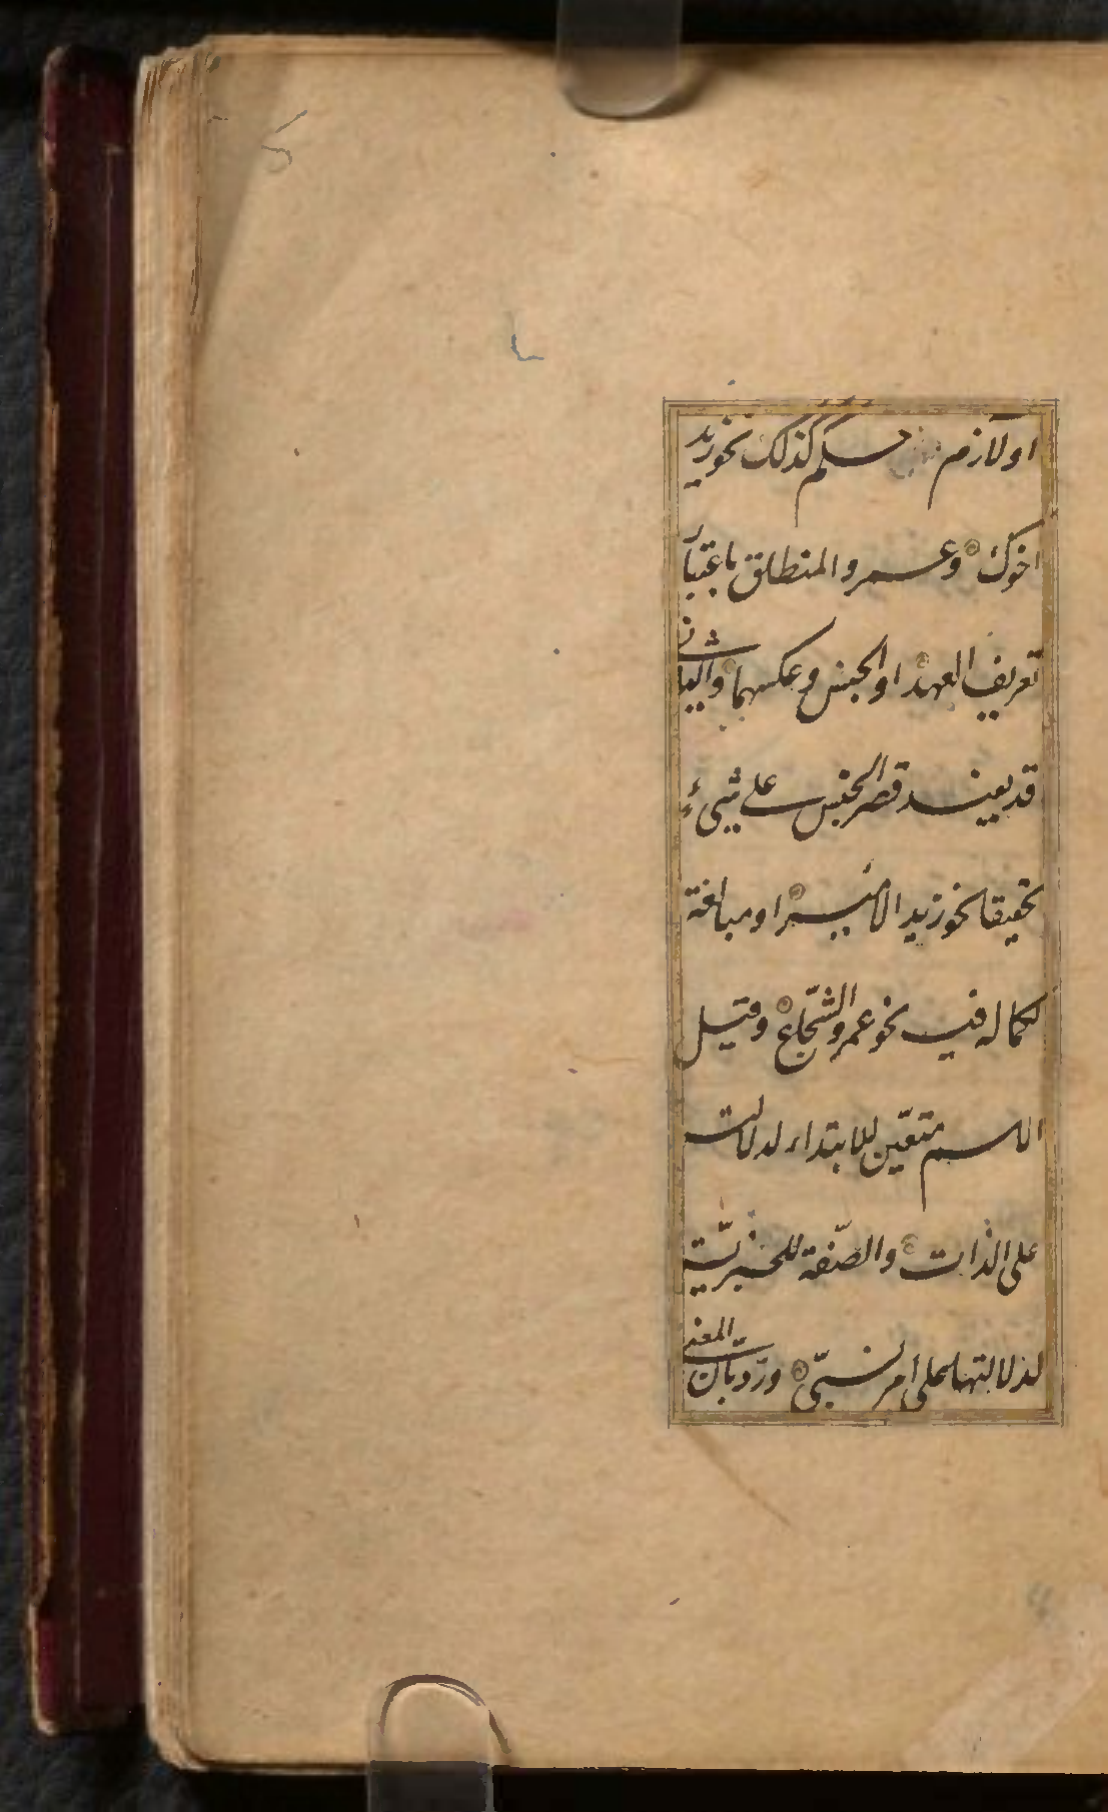 او لازم حكم كذلك نحو زيد
اخوك وعمرو المنطلق باعتبار
تعريف العهد او الجنس وعكسهما والثاني
قد يفيد قصر الجنس على شيء
تحقيقا نحو زيد الامير او مبالغة
لكماله فيه نحو عمرو الشجاع وقيل
الاسم متعين للابتداء لدلالته
على الذات والصفة للخبرية
لدلالتها على أمر نسبي ورد بان المعنى